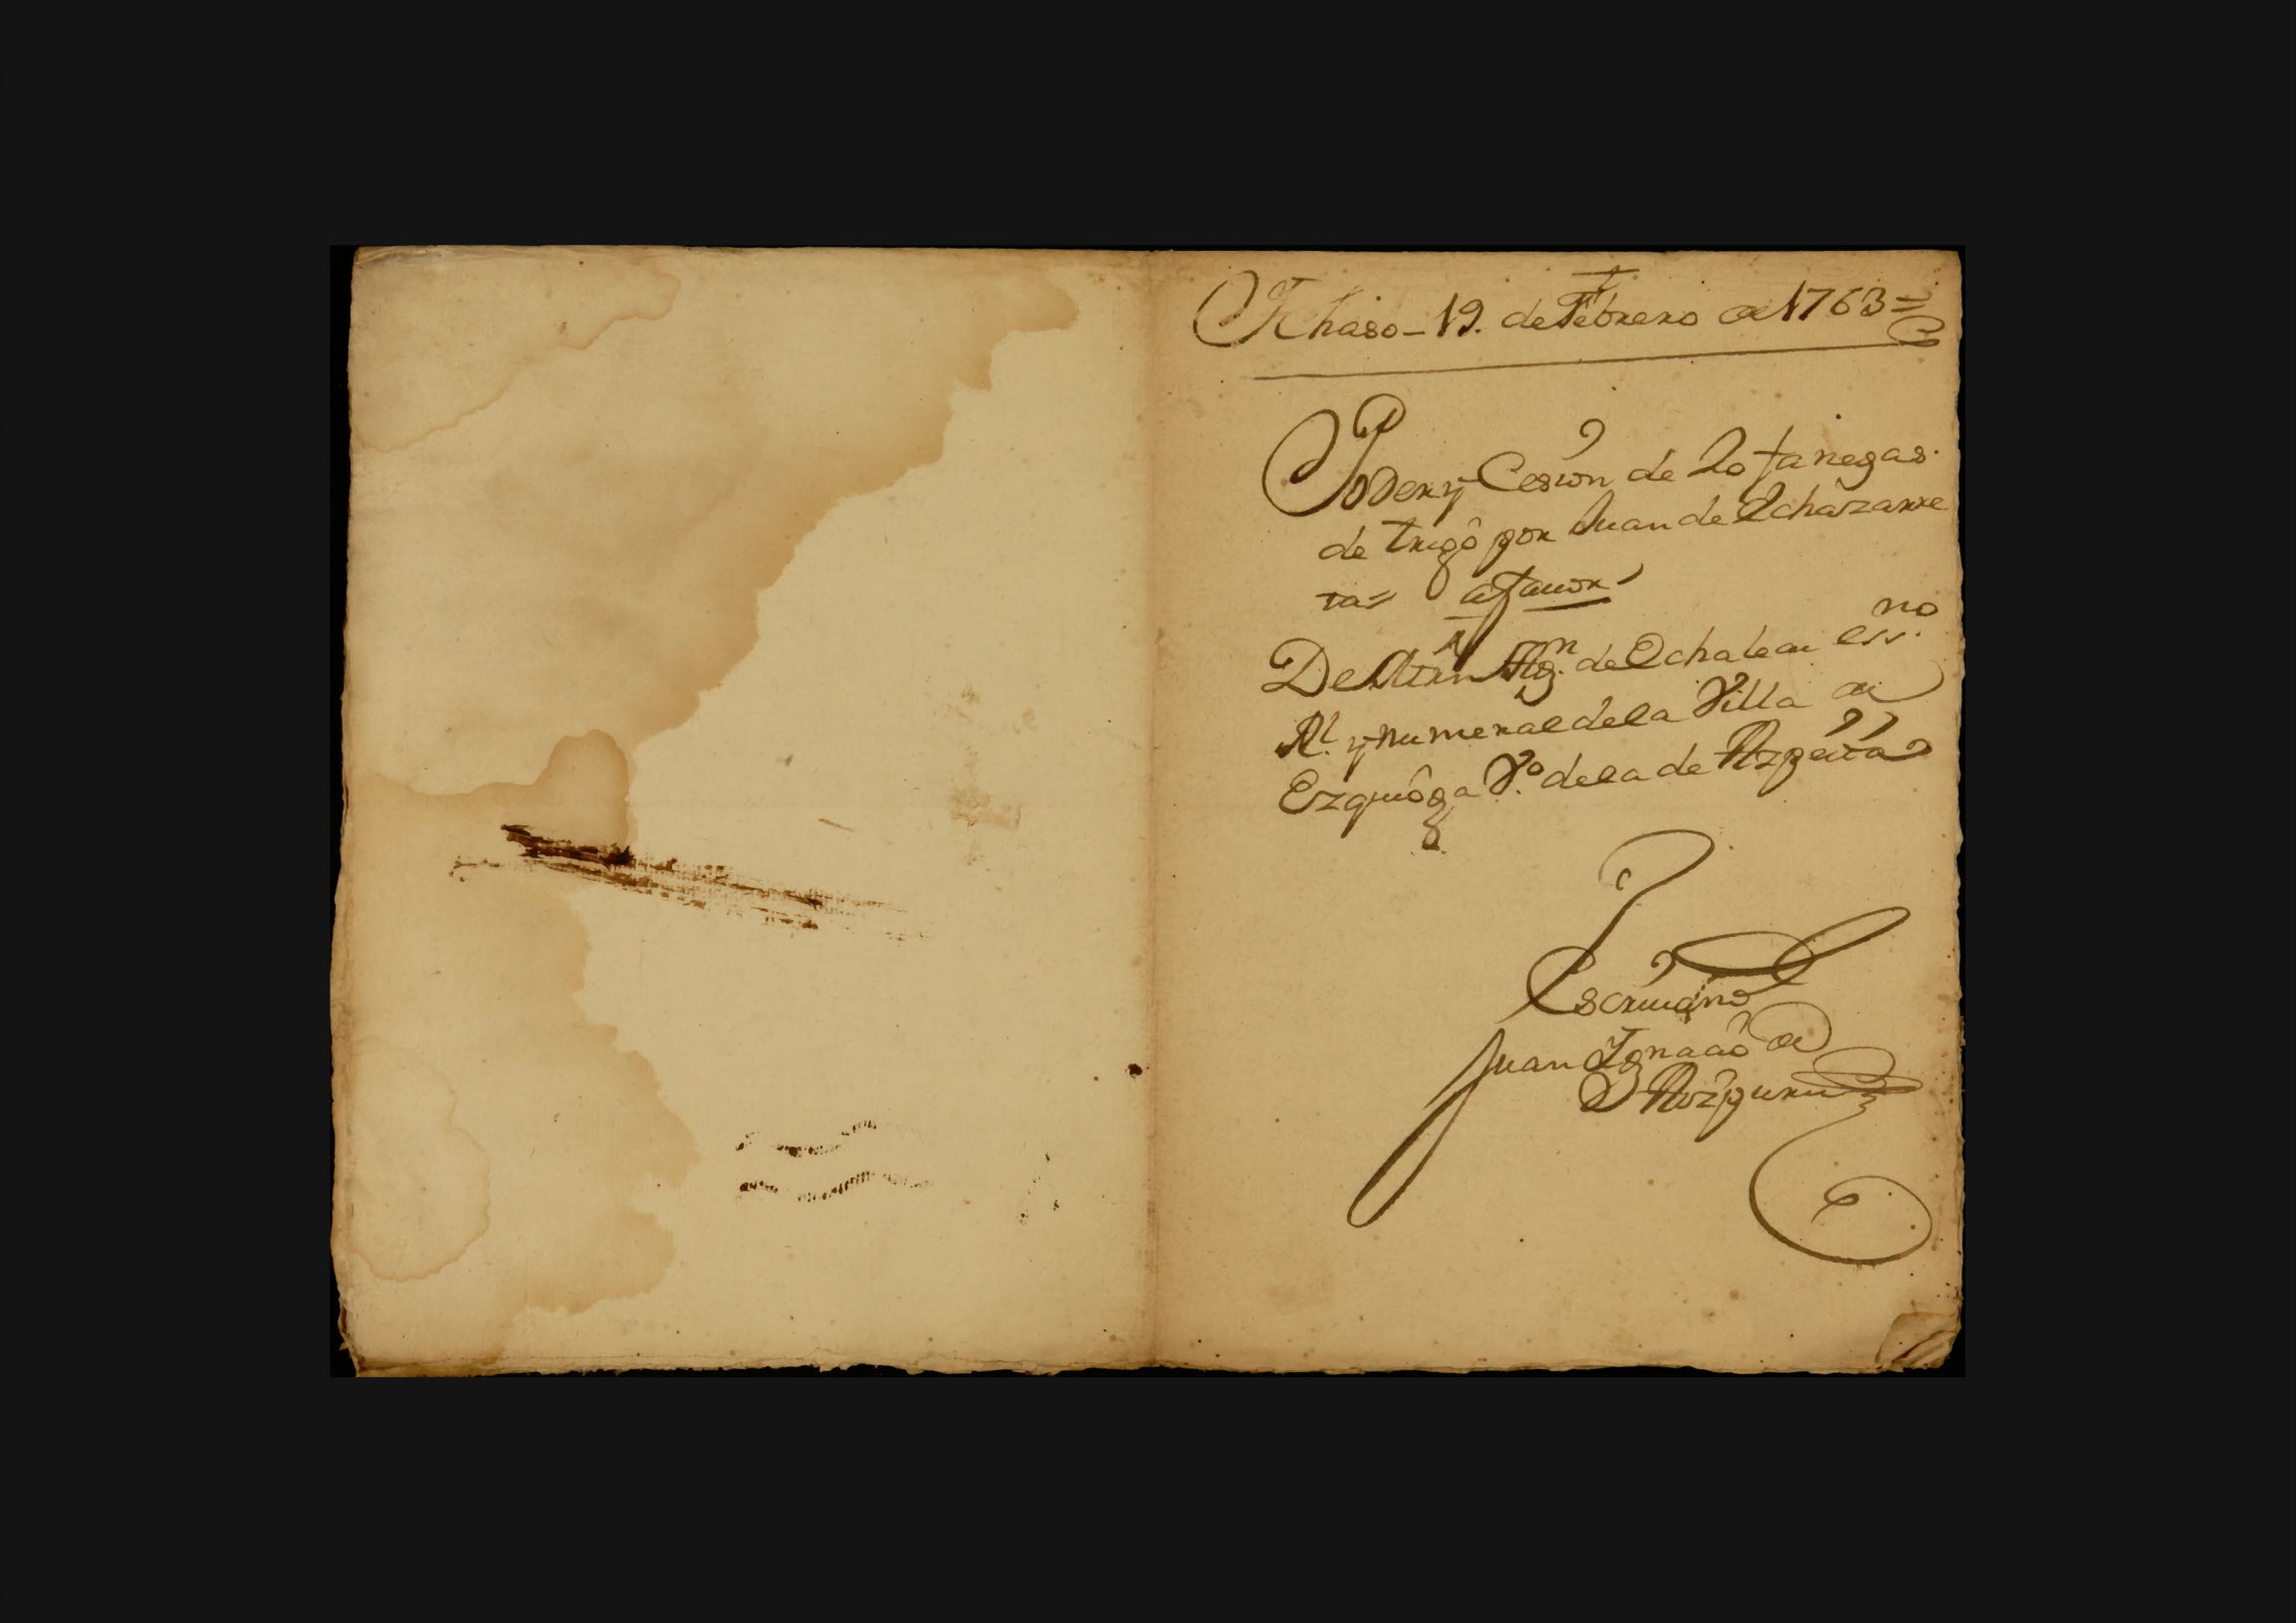 Ichaso - 19. de Febrero de 1763=
Poder y Cesion de 20 fanegas.
de trigo por Juan de Echazarre
ta= a favor
De Ign. de Echaleau essno
Rl. y numeral de la Villa de
Ezquioga Vo. de la de Azpeitia
Escrivano
Juan Ignacio de
Aizpuru